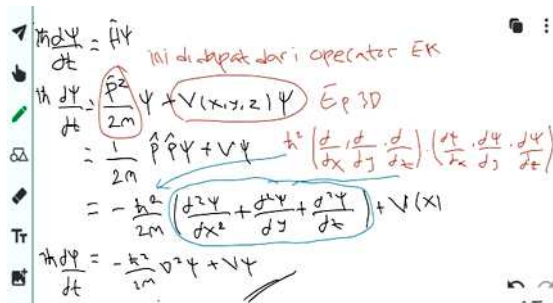 iħ dψ/dt = Ĥψ
ini didapat dari operator EK
iħ dψ/dt = p̂²/2m ψ + V(x,y,z)ψ Ep 3D
= 1/2m p̂ p̂ψ + Vψ
ħ² (d/dx, d/dy, d/dz) · (dψ/dx, dψ/dy, dψ/dz)
= -ħ²/2m (d²ψ/dx² + d²ψ/dy + d²ψ/dz) + V(x)
iħ dψ/dt = -ħ²/2m ∇²ψ + Vψ
Tт